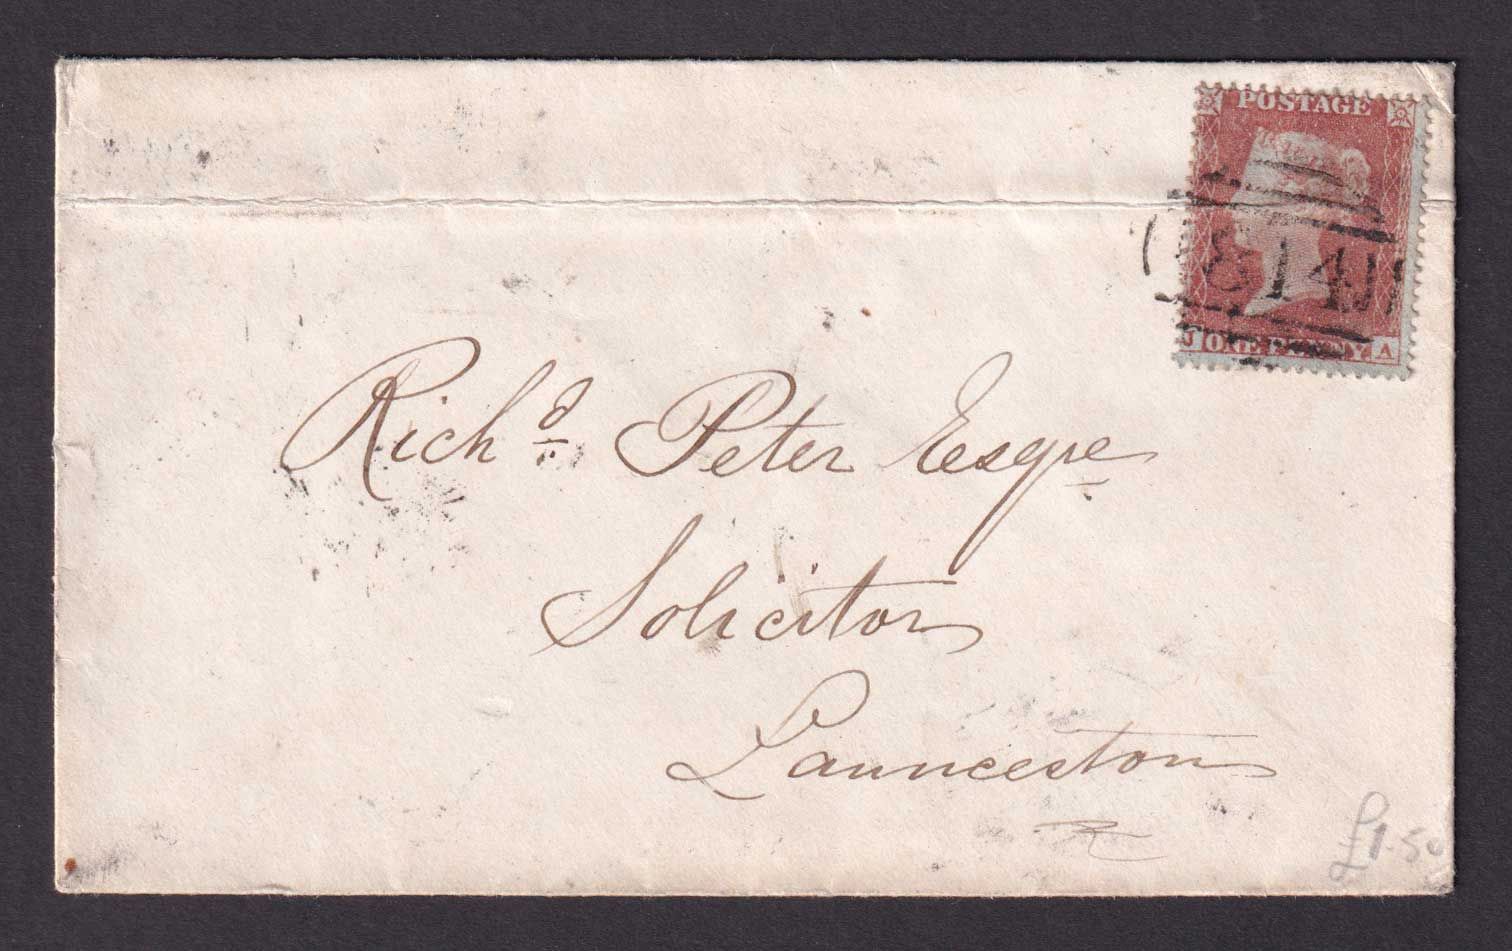 POSTAGE
814
J ONE PENNY A
Richd Peter Esqre
Solicitor
Launceston
£1.50